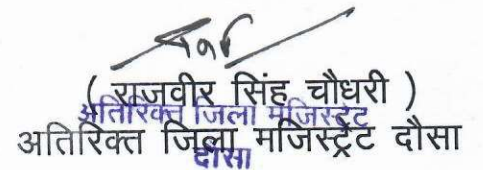 ( राजवीर सिंह चौधरी )
अतिरिक्त जिला मजिस्ट्रेट
अतिरिक्त जिला मजिस्ट्रेट दौसा
दौसा